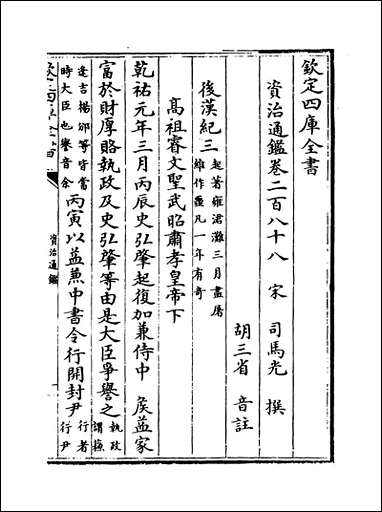 欽定四庫全書
資治通鑑卷二百八十八 宋 司馬光 撰
胡三省 音註
後漢紀三 起著雍涒灘三月盡屠
維作噩凡一年有奇
高祖睿文聖武昭肅孝皇帝下
乾祐元年三月丙辰史弘肇起復加兼侍中 侯益家
富於財厚賂執政及史弘肇等由是大臣爭譽之 執政
謂蘇
逢吉楊邠等皆當
時大臣也譽音余 丙寅以益兼中書令行開封尹 行者
行尹
資治通鑑